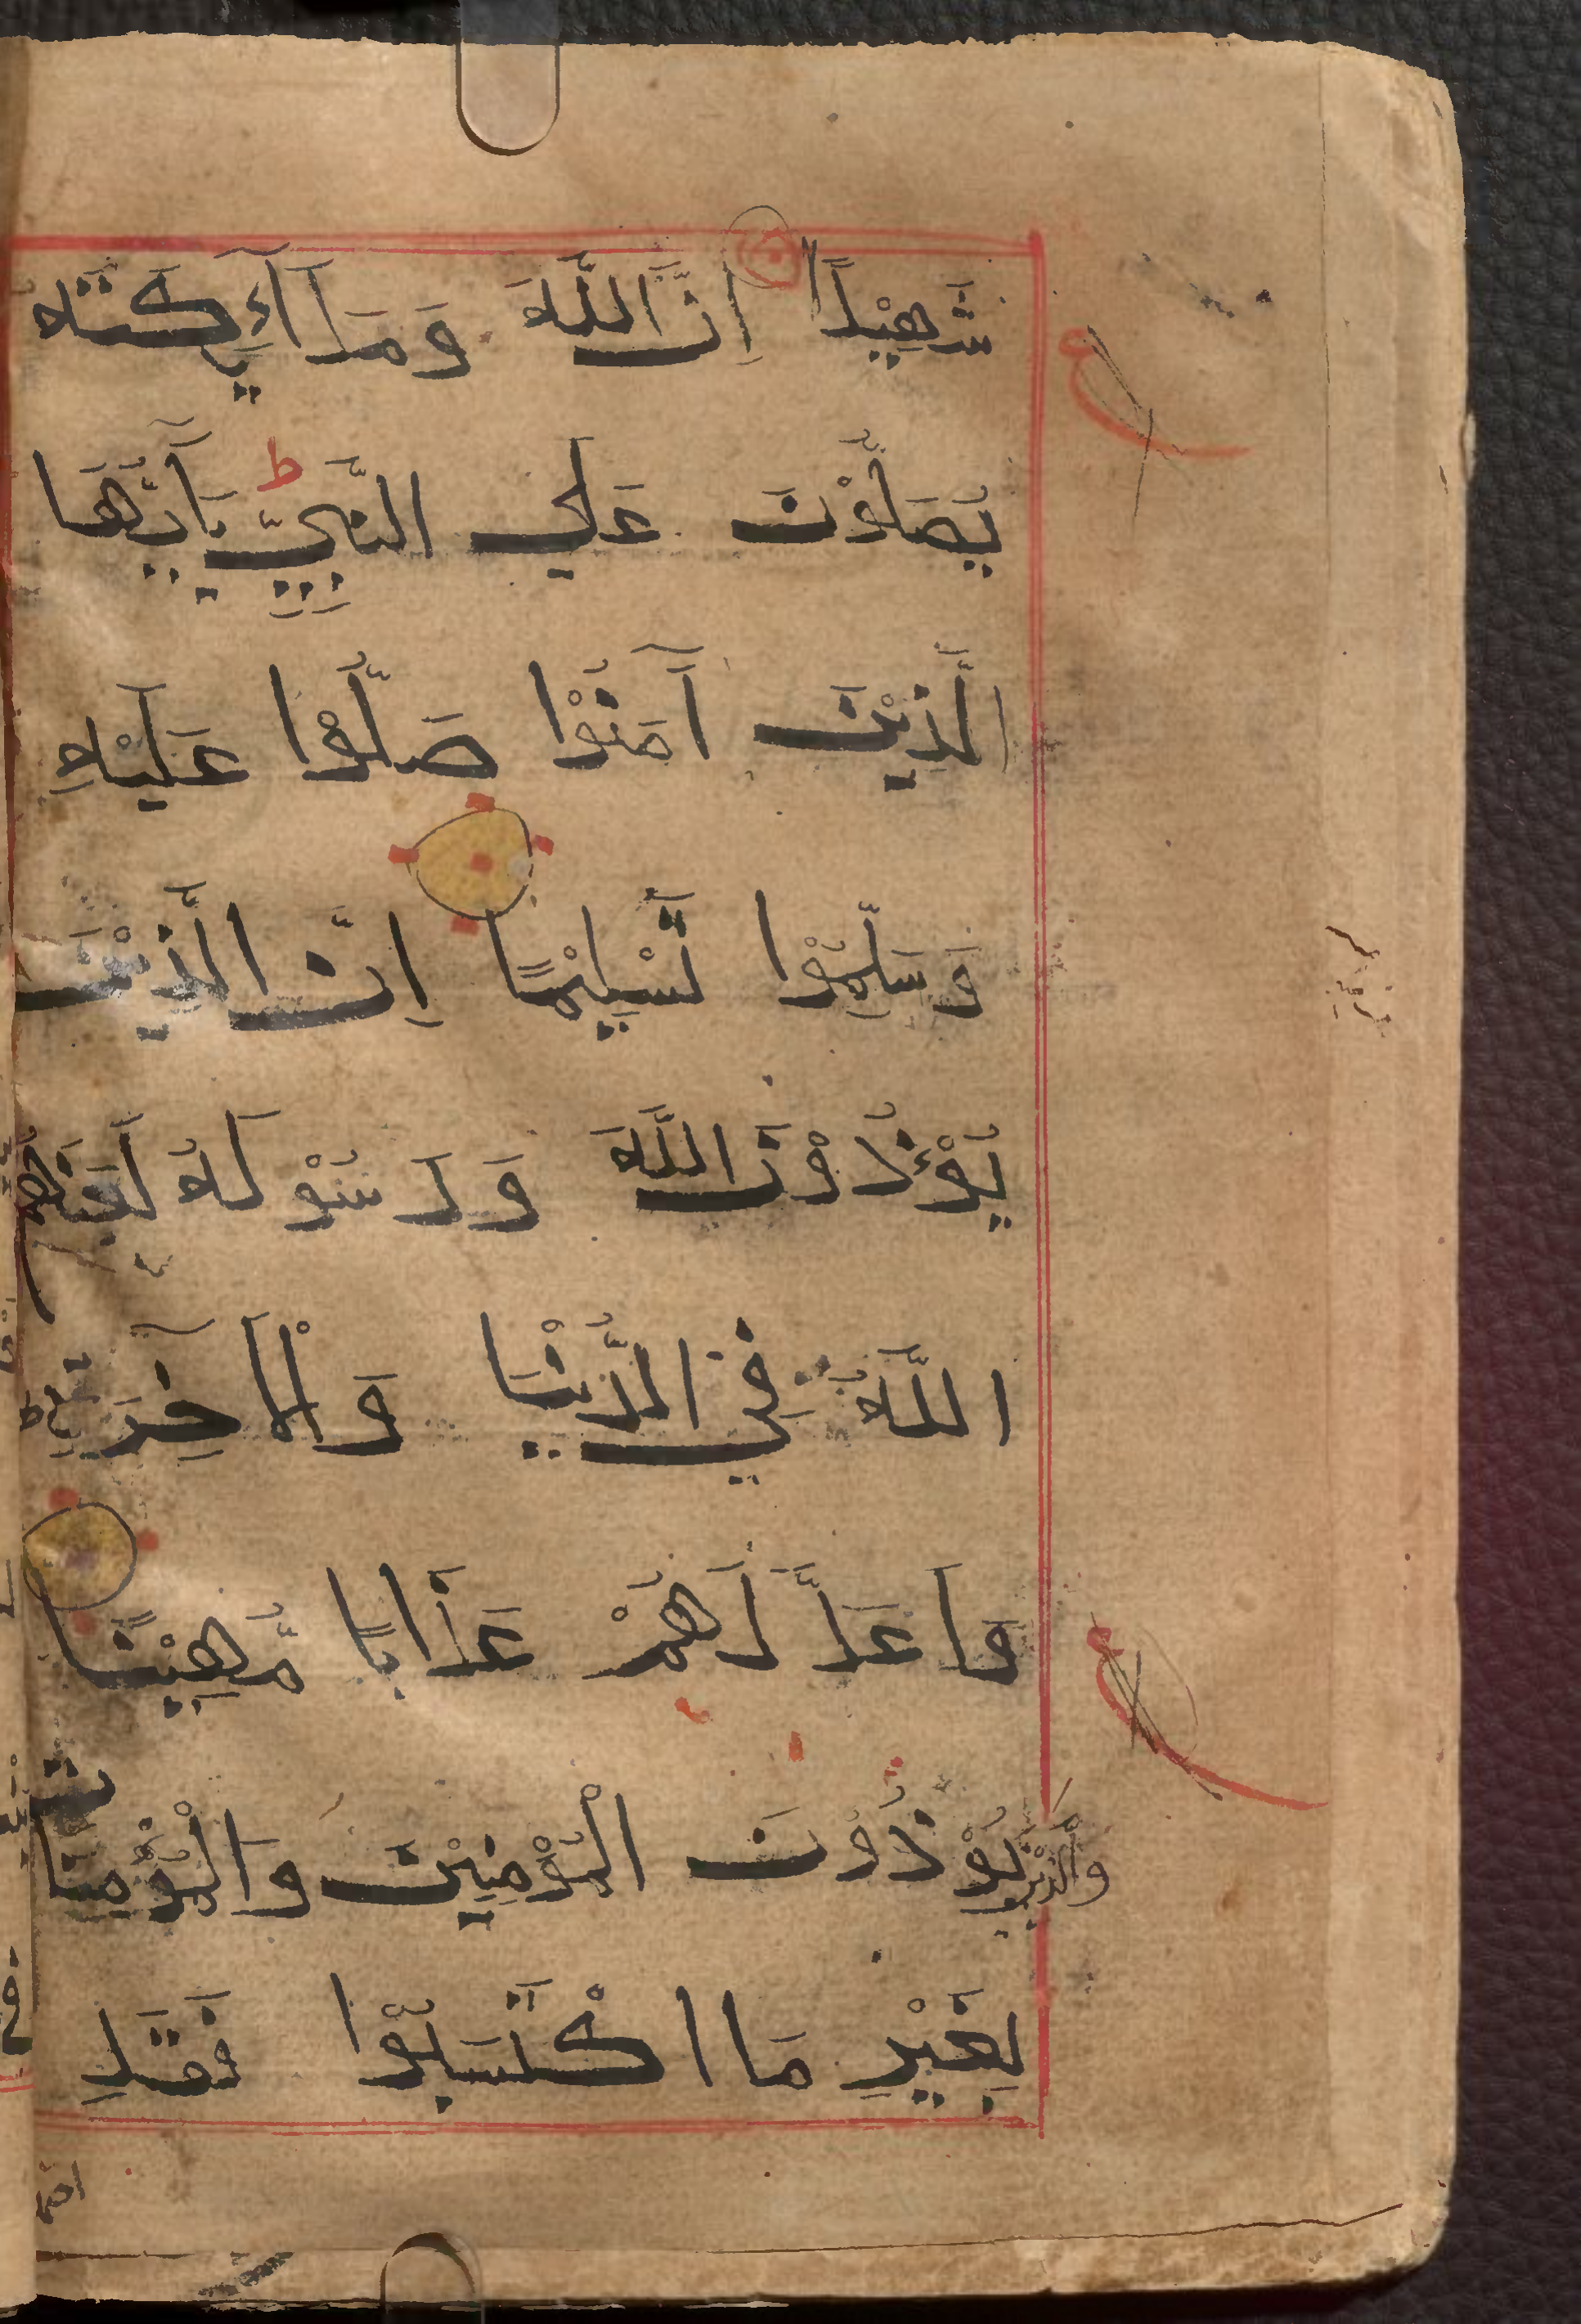 شَهِيْدًا اِنَّ اللّٰهَ وَمَلَآئِكَتَهٗ
يُصَلُّوْنَ عَلَي النَّبِيِّ ط يَآَيُّهَا
الَّذِيْنَ آمَنُوْا صَلُّوْا عَلَيْهِ
وَسَلِّمُوْا تَسْلِيْمًا اِنَّ الَّذِيْنَ
يُوْءْذُوْنَ اللّٰهَ وَرَسُوْلَهُ لَعَنَهُم
اللّٰهُ فِي الدُّنْيَا وَالْآخِرَةِ
وَاَعَدَّ لَهُمْ عَذَابًا مُّهِيْنًا
وَالَّذِيْنَ يُوْذُوْنَ الْمُوْمِنِيْنَ وَالْمُوْمِنَات
بِغَيْرِ مَا اكْتَسَبُوْا فَقَدِ